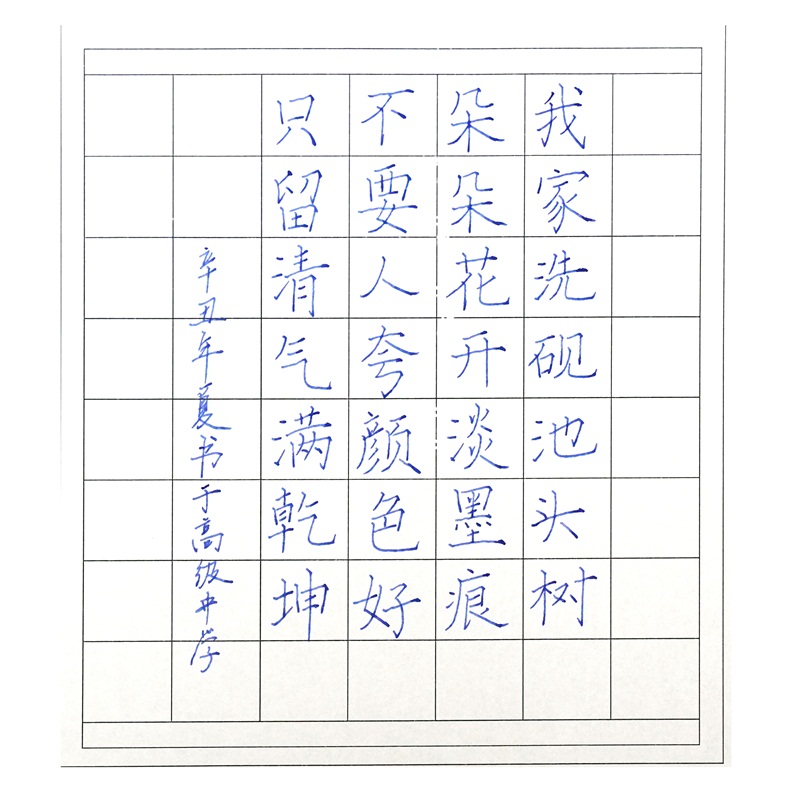 我家洗砚池头树
朵朵花开淡墨痕
不要人夸颜色好
只留清气满乾坤
辛丑年夏书于高级中学